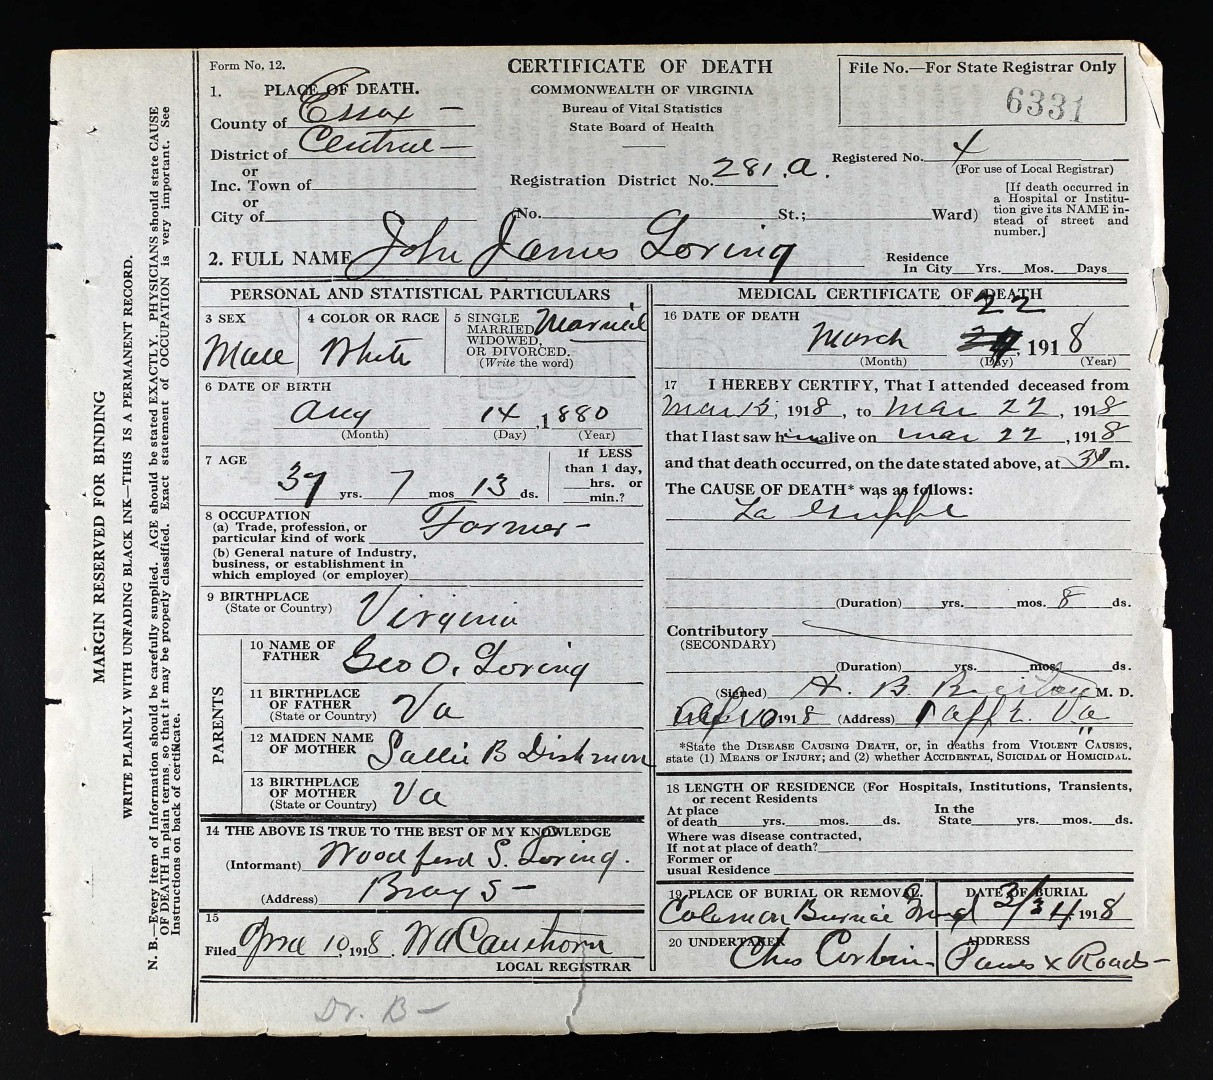 MARGIN RESERVED FOR BINDING
WRITE PLAINLY WITH UNFADING BLACK INK—THIS IS A PERMANENT RECORD.
N. B.—Every item of Information should be carefully supplied. AGE should be stated EXACTLY. PHYSICIANS should state CAUSE
OF DEATH in plain terms, so that it may be properly classified. Exact statement of OCCUPATION is very important. See
Instructions on back of certificate.
Form No. 12.
CERTIFICATE OF DEATH
COMMONWEALTH OF VIRGINIA
Bureau of Vital Statistics
State Board of Health
File No.—For State Registrar Only
6331
1. PLACE OF DEATH.
County of Essex —
District of Central —
or
Inc. Town of
or
City of
Registration District No. 281.a.
Registered No. 4
(For use of Local Registrar)
(No. St.; Ward)
[If death occurred in
a Hospital or Institu-
tion give its NAME in-
stead of street and
number.]
2. FULL NAME John James Loving
Residence
In City Yrs. Mos. Days
PERSONAL AND STATISTICAL PARTICULARS
3 SEX
Male
4 COLOR OR RACE
White
5 SINGLE
MARRIED
WIDOWED,
OR DIVORCED.
(Write the word)
Married
6 DATE OF BIRTH
Aug 14, 1880
(Month) (Day) (Year)
7 AGE
37 yrs. 7 mos 13 ds.
If LESS
than 1 day,
hrs. or
min.?
8 OCCUPATION
(a) Trade, profession, or
particular kind of work Farmer —
(b) General nature of Industry,
business, or establishment in
which employed (or employer)
9 BIRTHPLACE
(State or Country) Virginia
PARENTS
10 NAME OF
FATHER Geo O. Loving
11 BIRTHPLACE
OF FATHER
(State or Country) Va
12 MAIDEN NAME
OF MOTHER Sallie B Dishman
13 BIRTHPLACE
OF MOTHER
(State or Country) Va
14 THE ABOVE IS TRUE TO THE BEST OF MY KNOWLEDGE
(Informant) Woodford S. Loving.
(Address) Brays —
15
Filed 10, 1918. LOCAL REGISTRAR
MEDICAL CERTIFICATE OF DEATH
16 DATE OF DEATH
22
March , 1918
(Month) (Day) (Year)
17 I HEREBY CERTIFY, That I attended deceased from
Mar 15, 1918, to Mar 22, 1918
that I last saw him alive on Mar 22, 1918
and that death occurred, on the date stated above, at m.
The CAUSE OF DEATH* was as follows:
La Grippe
(Duration) yrs. mos. 8 ds.
Contributory
(SECONDARY)
(Duration) yrs. mos. ds.
(Signed) H. B. M. D.
10 1918 (Address) Va
*State the DISEASE CAUSING DEATH, or, in deaths from VIOLENT CAUSES,
state (1) MEANS OF INJURY; and (2) whether ACCIDENTAL, SUICIDAL or HOMICIDAL.
18 LENGTH OF RESIDENCE (For Hospitals, Institutions, Transients,
or recent Residents
At place
of death yrs. mos. ds.
In the
State yrs. mos. ds.
Where was disease contracted,
If not at place of death?
Former or
usual Residence
19 PLACE OF BURIAL OR REMOVAL
Coleman Burial
DATE OF BURIAL
3/24, 1918
20 UNDERTAKER
Chas Corbin
ADDRESS
X Roads —
Dr. B —